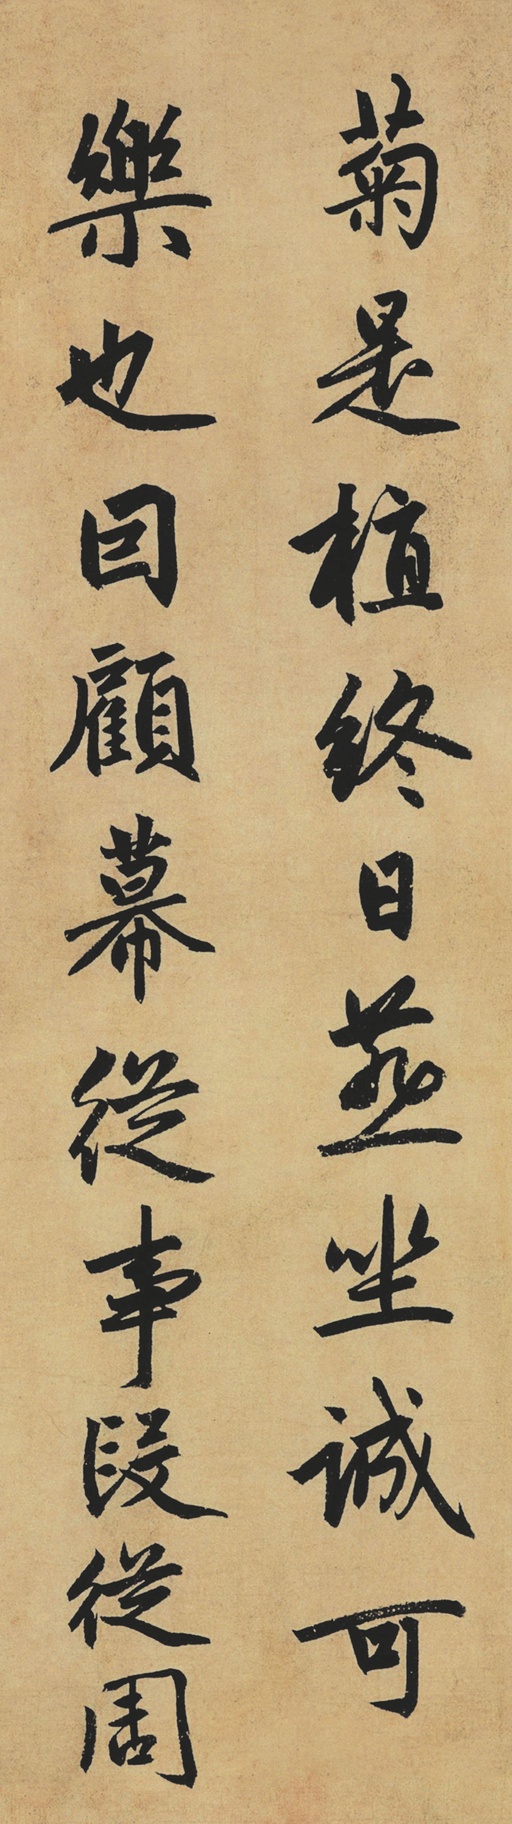 菊是植終日燕坐誠可
樂也回顧幕從事段從周